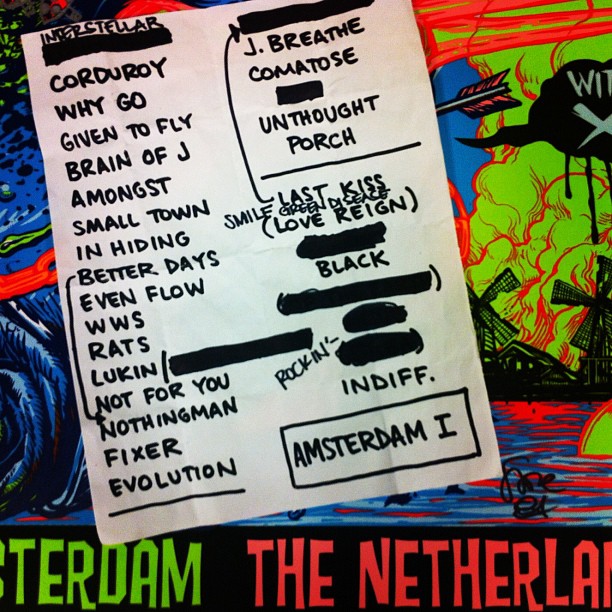 INTERSTELLAR
CORDUROY
WHY GO
GIVEN TO FLY
BRAIN OF J
AMONGST
SMALL TOWN
IN HIDING
BETTER DAYS
EVEN FLOW
WWS
RATS
LUKIN/
NOT FOR YOU
NOTHINGMAN
FIXER
EVOLUTION
J. BREATHE
COMATOSE
UNTHOUGHT
PORCH
LAST KISS
SMILE GREEN DISEASE
(LOVE REIGN)
BLACK
)
ROCKIN'-
INDIFF.
AMSTERDAM I
WIT
STERDAM THE NETHERLA